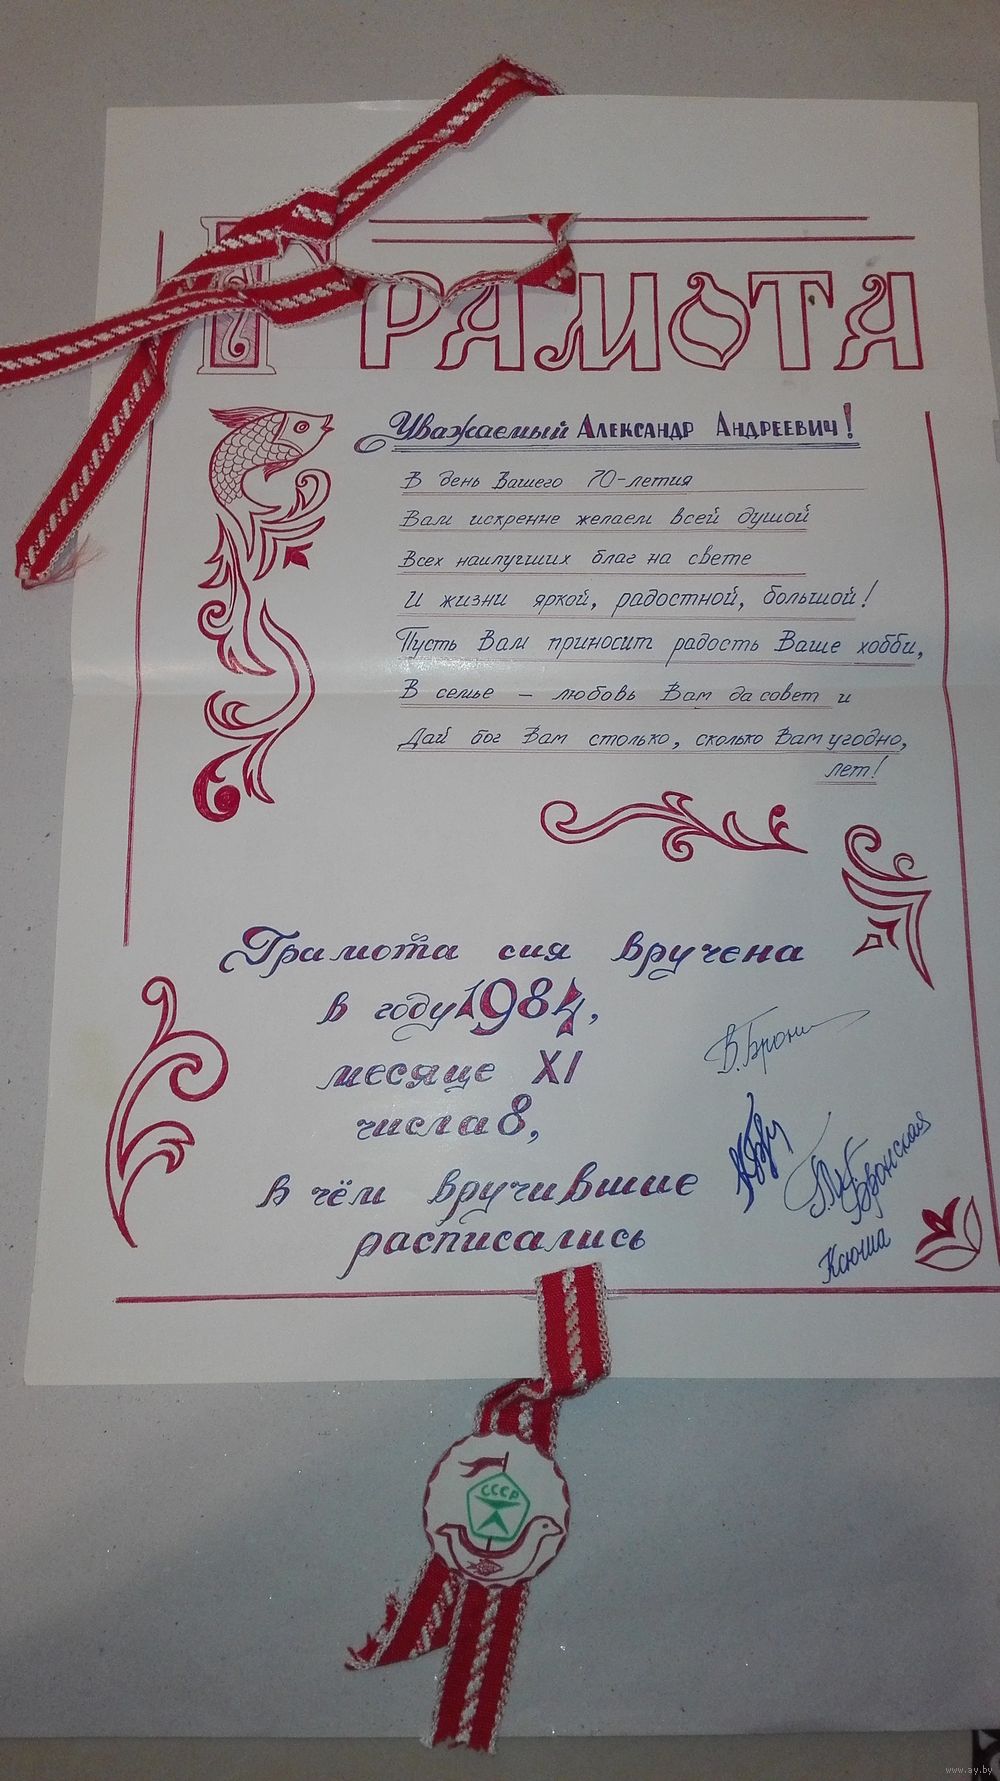 ГРАМОТА
Уважаемый Александр Андреевич!
В день Вашего 70-летия
Вам искренне желаем всей душой
Всех наилучших благ на свете
И жизни яркой, радостной, большой!
Пусть Вам приносит радость Ваше хобби,
В семье – любовь Вам да совет и
Дай бог Вам столько, сколько Вам угодно,
лет!
Грамота сия вручена
в году 1984,
месяце XI
числа 8,
в чём вручившие
расписались
Ксюша
СССР
www.ay.by